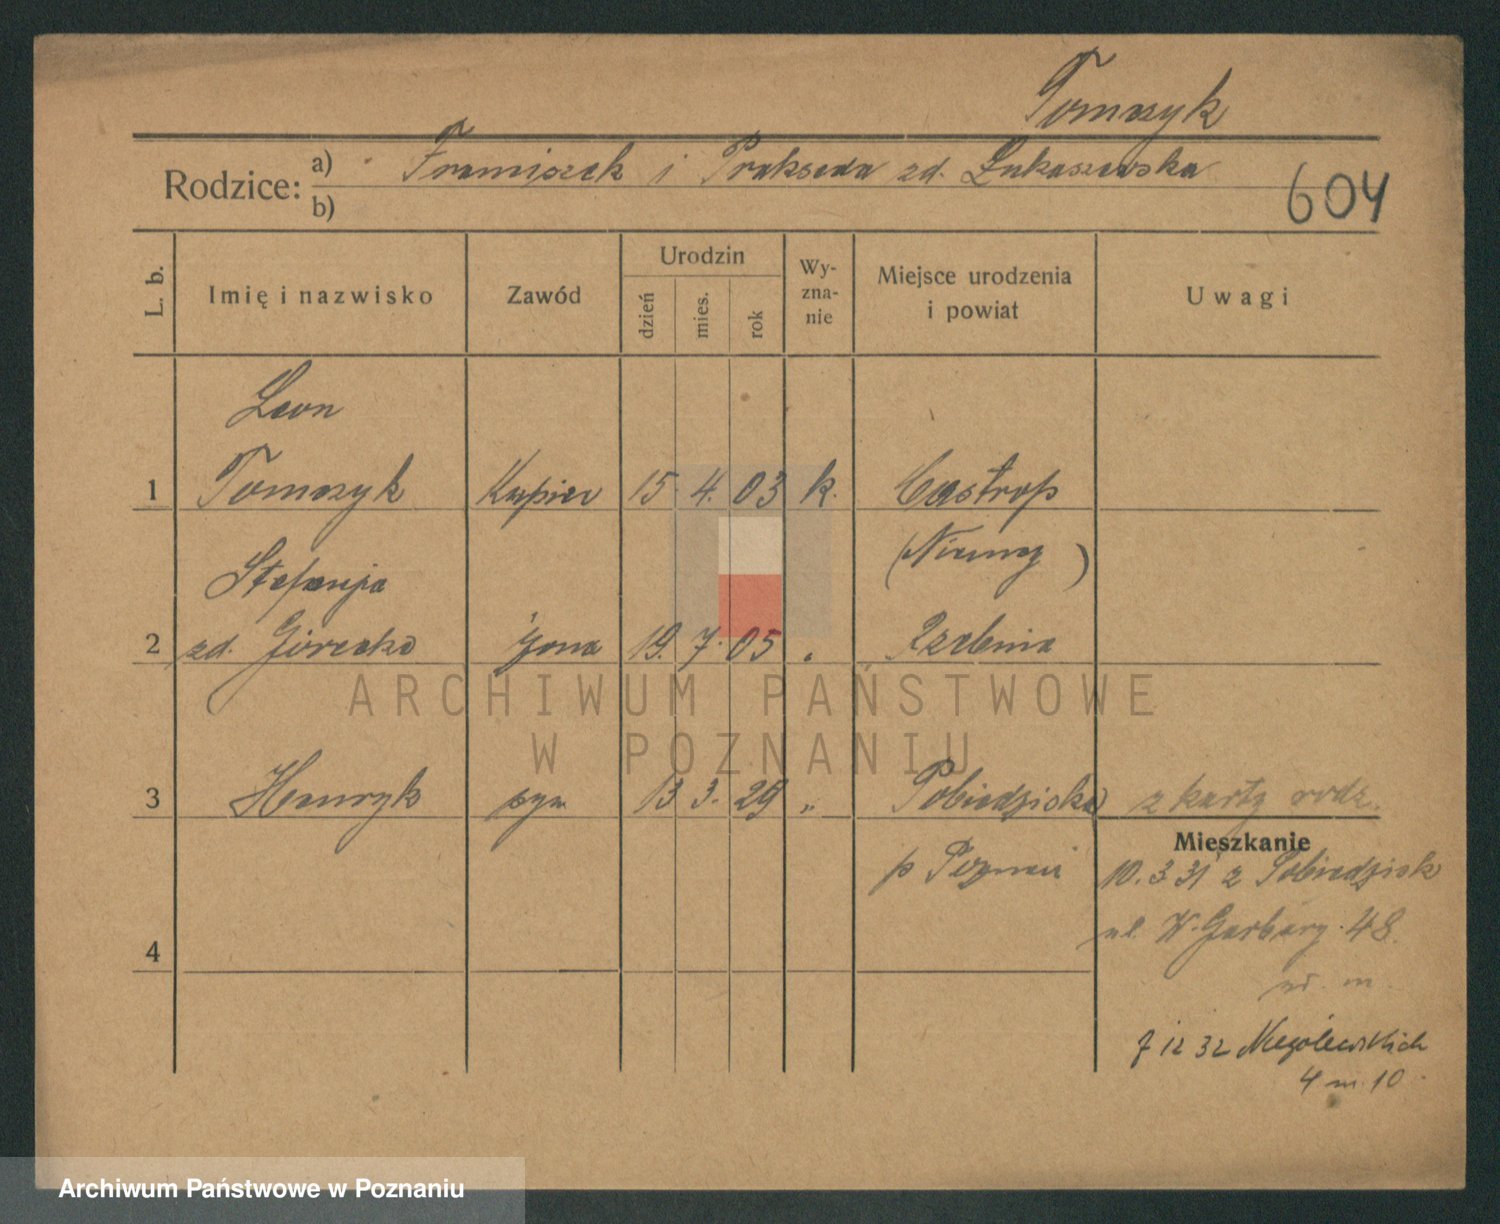 Tomczyk
Rodzice: a) Franciszek i Prakseda zd. Łukaszewska
b)
604
L. b.
Imię i nazwisko
Zawód
Urodzin
dzień
mies.
rok
Wy-
zna-
nie
Miejsce urodzenia
i powiat
Uwagi
Leon
1 Tomczyk Kupiec 15. 4. 03 k. Castrop
(Niemcy)
Stefanja
2 zd. Górecka żona 19. 7. 05 "
3 Henryk syn 13 3. 29 " Pobiedziska z karty rodz.
p Poznań
Mieszkanie
10. 3 31 z Pobiedzisk
ul. W. Garbary 48
4
7 12 32 Niegolewskich
4 m. 10
ARCHIWUM PAŃSTWOWE
W POZNANIU
Archiwum Państwowe w Poznaniu